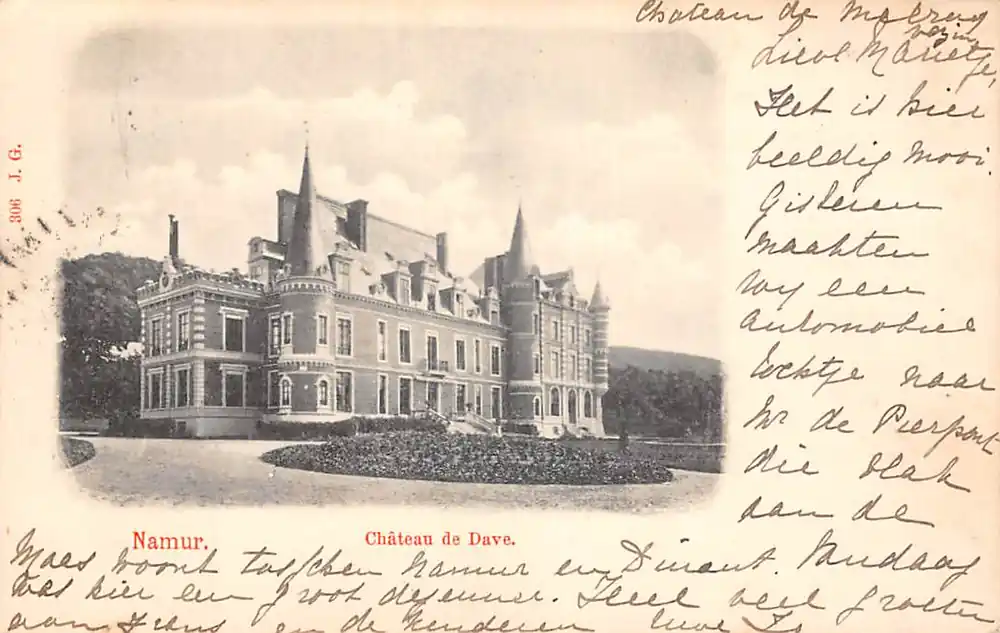 Chateau de
vezin
Lieve Marietje,
Het is hier
beeldig mooi.
Gisteren
maakten
wy een
automobiel
tochtje naar
Mr de Pierpont
die vlak
aan de
Maas woont tusschen Namur en Dinant. Vandaag
was hier een groot dejeuner. Heel veel groeten
aan Frans en de kinderen
306 J. G.
Namur.
Château de Dave.